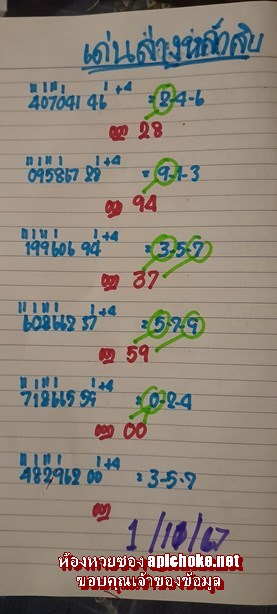 เด่นล่างหลักสิบ
407041 46 +4 = 8-4-6
28
095867 28 +4 = 9-1-3
94
199606 94 +4 = 3-5-7
37
608642 37 +4 = 5-7-9
59
712665 59 +4 = 0-2-4
00
482962 00 +4 = 3-5-7
1/10/67
ห้องหวยซอง apichoke.net
ขอบคุณเจ้าของข้อมูล